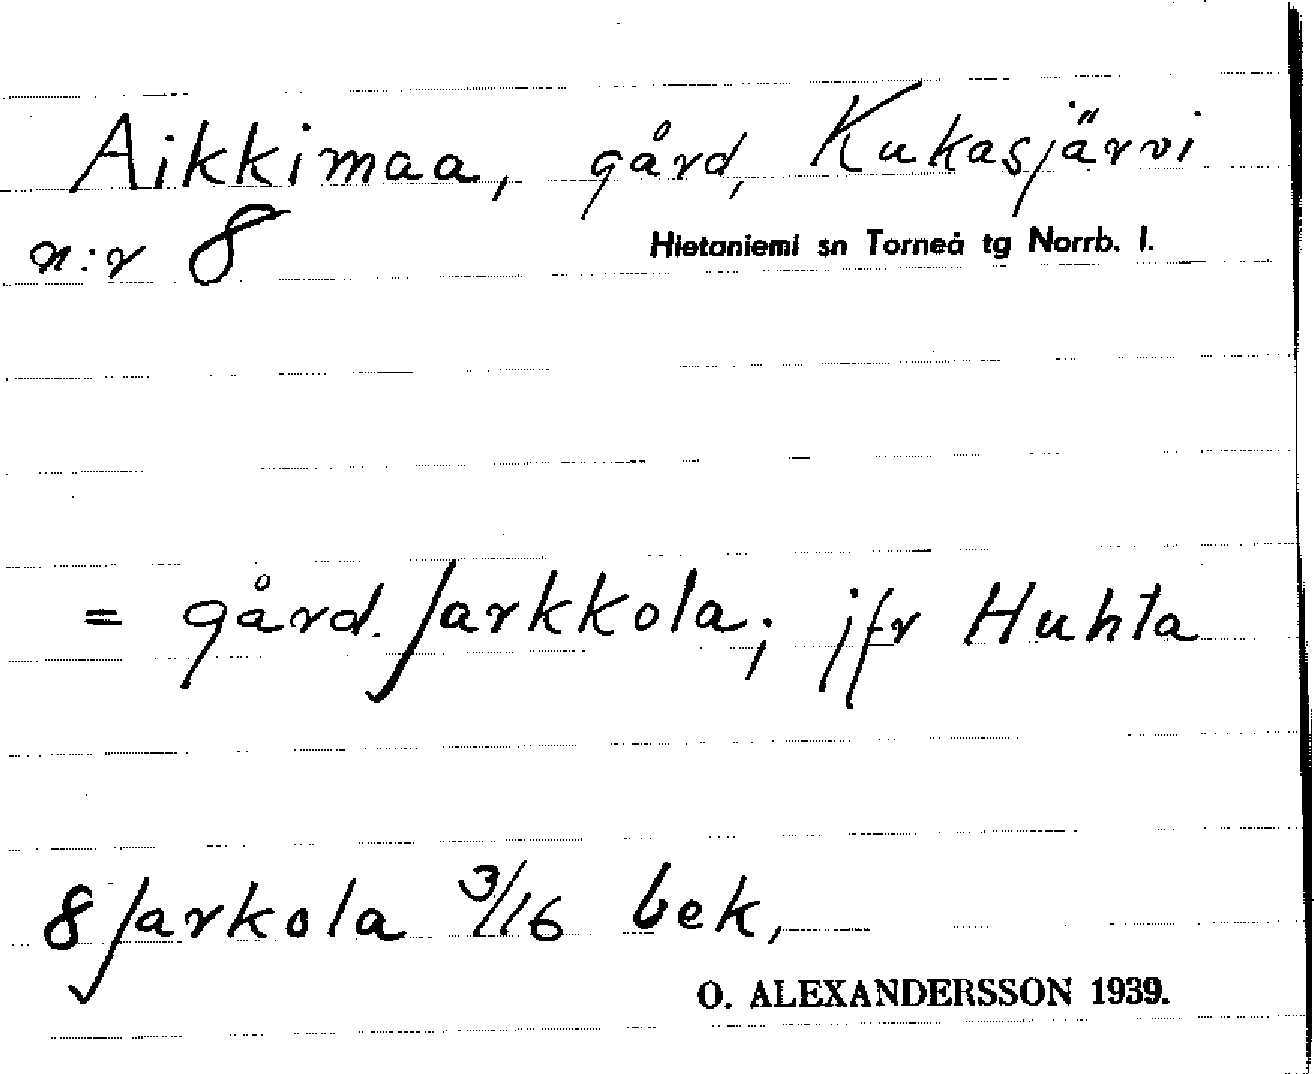 Aikkimaa, gård, Kukasjärvi
n:r 8
Hietaniemi sn Torneå tg Norrb. l.
= gård. Jarkkola; jfr Huhta
8 Jarkola 3/16 bek,
O. ALEXANDERSSON 1939.